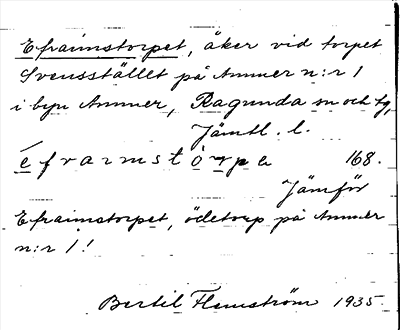 Efraimstorpet, åker vid torpet
Svensstället på Ammer n:r 1
i byn Ammer, Ragunda sn och tg,
Jämtl. l.
éfraimstòrpe 168.
Jämför
Efraimstorpet, ödetorp på Ammer
n:r 1!
Bertil Flemström 1935.